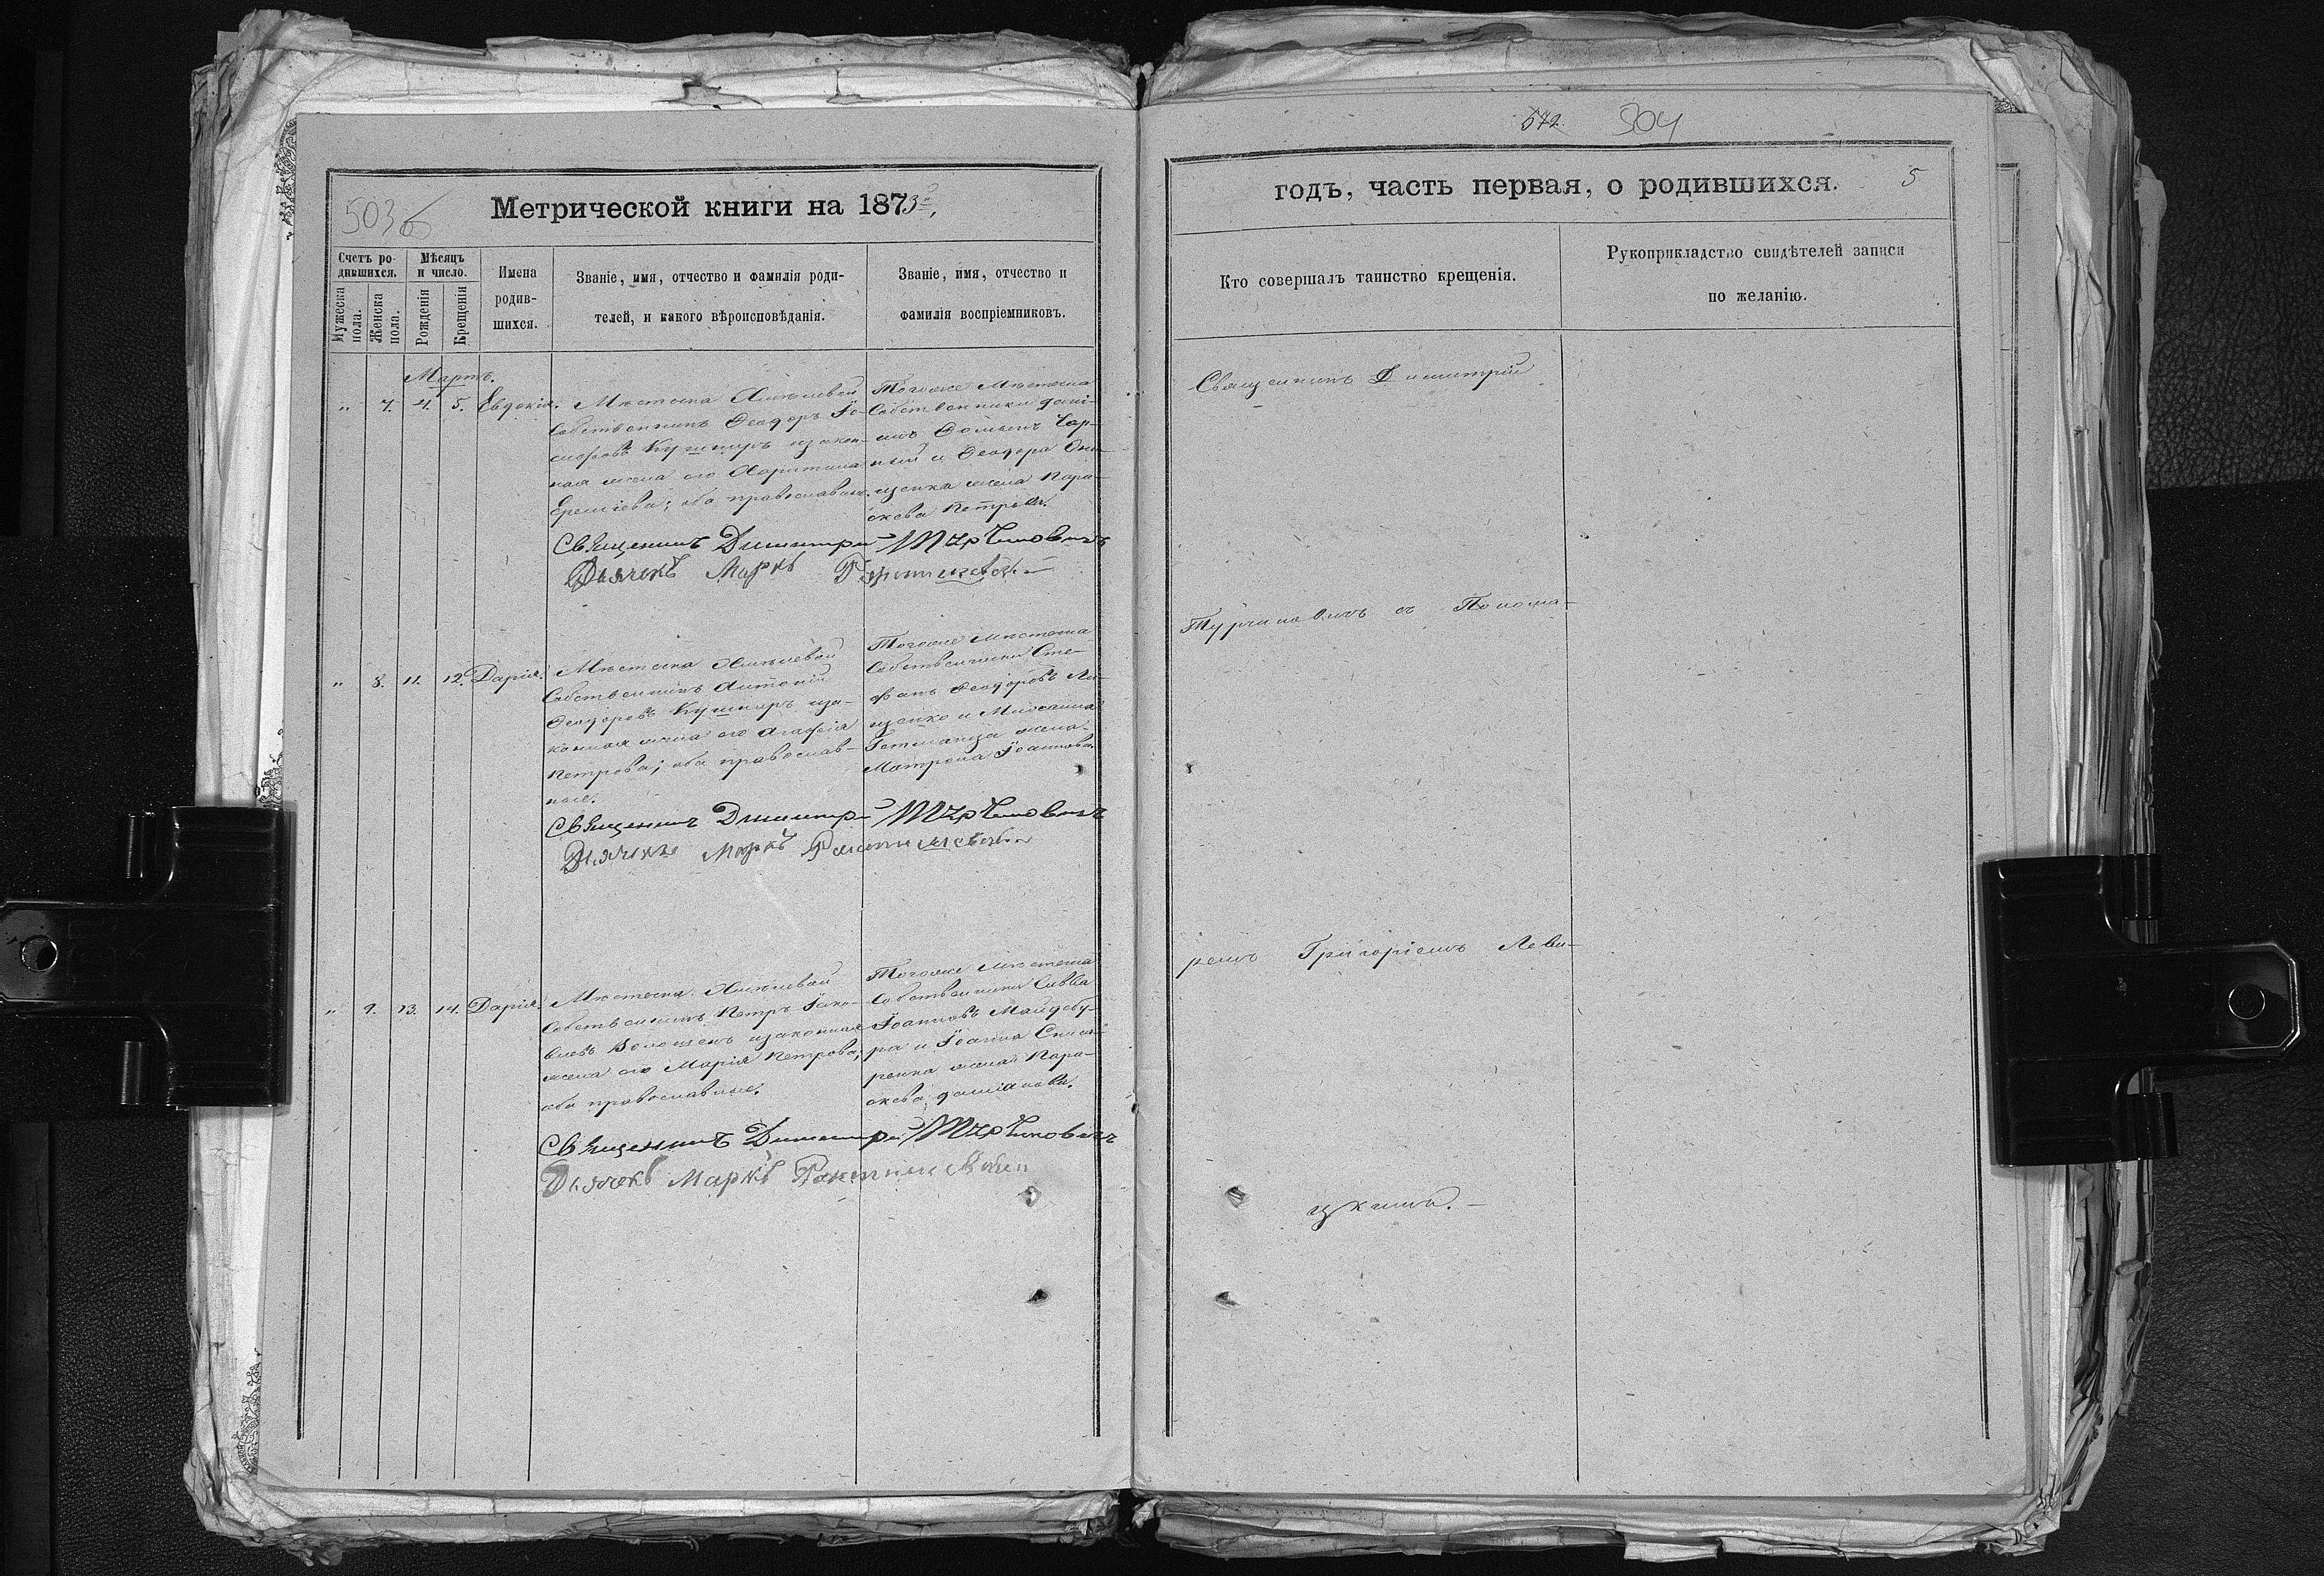 503б
Метрической книги на 1873й,
Счетъ ро-
дившихся.
Мѣсяцъ
и число.
Имена
родив-
шихся.
Званіе, имя, отчество и фамилія роди-
телей, и какого вѣроисповѣданія.
Званіе, имя, отчество и
фамилія воспріемниковъ.
Мужеска
пола.
Женска
пола.
Рожденія
Крещенія
Мартъ.
„ 7. 4. 5. Евдокія.
Мѣстечка
Собственникъ Ѳеодоръ Іо-
сифовъ Кушниръ и закон-
ная жена его Харитина
Еремѣева; оба православные.
Тогоже Мѣстечка
Собственники
и Ѳеодора
жена Пара-
скева Петрова.
Священникъ Димитрій Турчиновичъ
Дьячекъ Маркъ
„ 8. 11. 12. Дарія.
Мѣстечка
Собственникъ Антоній
Ѳеодоровъ Кушниръ и за-
конная жена его Агафія
Петрова; оба православ-
ные.
Тогоже Мѣстечка
Собственники Сте-
фанъ Ѳеодоровъ
и Михаила
Гетманца жена
Матрона Іоаннова.
Священникъ Димитрій Турчиновичъ
Дьячекъ Маркъ
„ 9. 13. 14. Дарія.
Мѣстечка
Собственникъ Петръ Іако-
влевъ и законная
жена его Марія Петрова;
оба православные.
Тогоже Мѣстечка
Собственники Савва
Іоанновъ Майдебу-
ра и Іоанна
жена Пара-
скева Даміанова.
Священникъ Димитрій Турчиновичъ
Дьячекъ Маркъ
572. 504
годъ, часть первая, о родившихся. 5
Кто совершалъ таинство крещенія.
Рукоприкладство свидѣтелей записи
по желанію.
Священникъ Димитрій
Турчиновичъ съ Понома-
ремъ Григоріемъ Леви-
цкимъ.